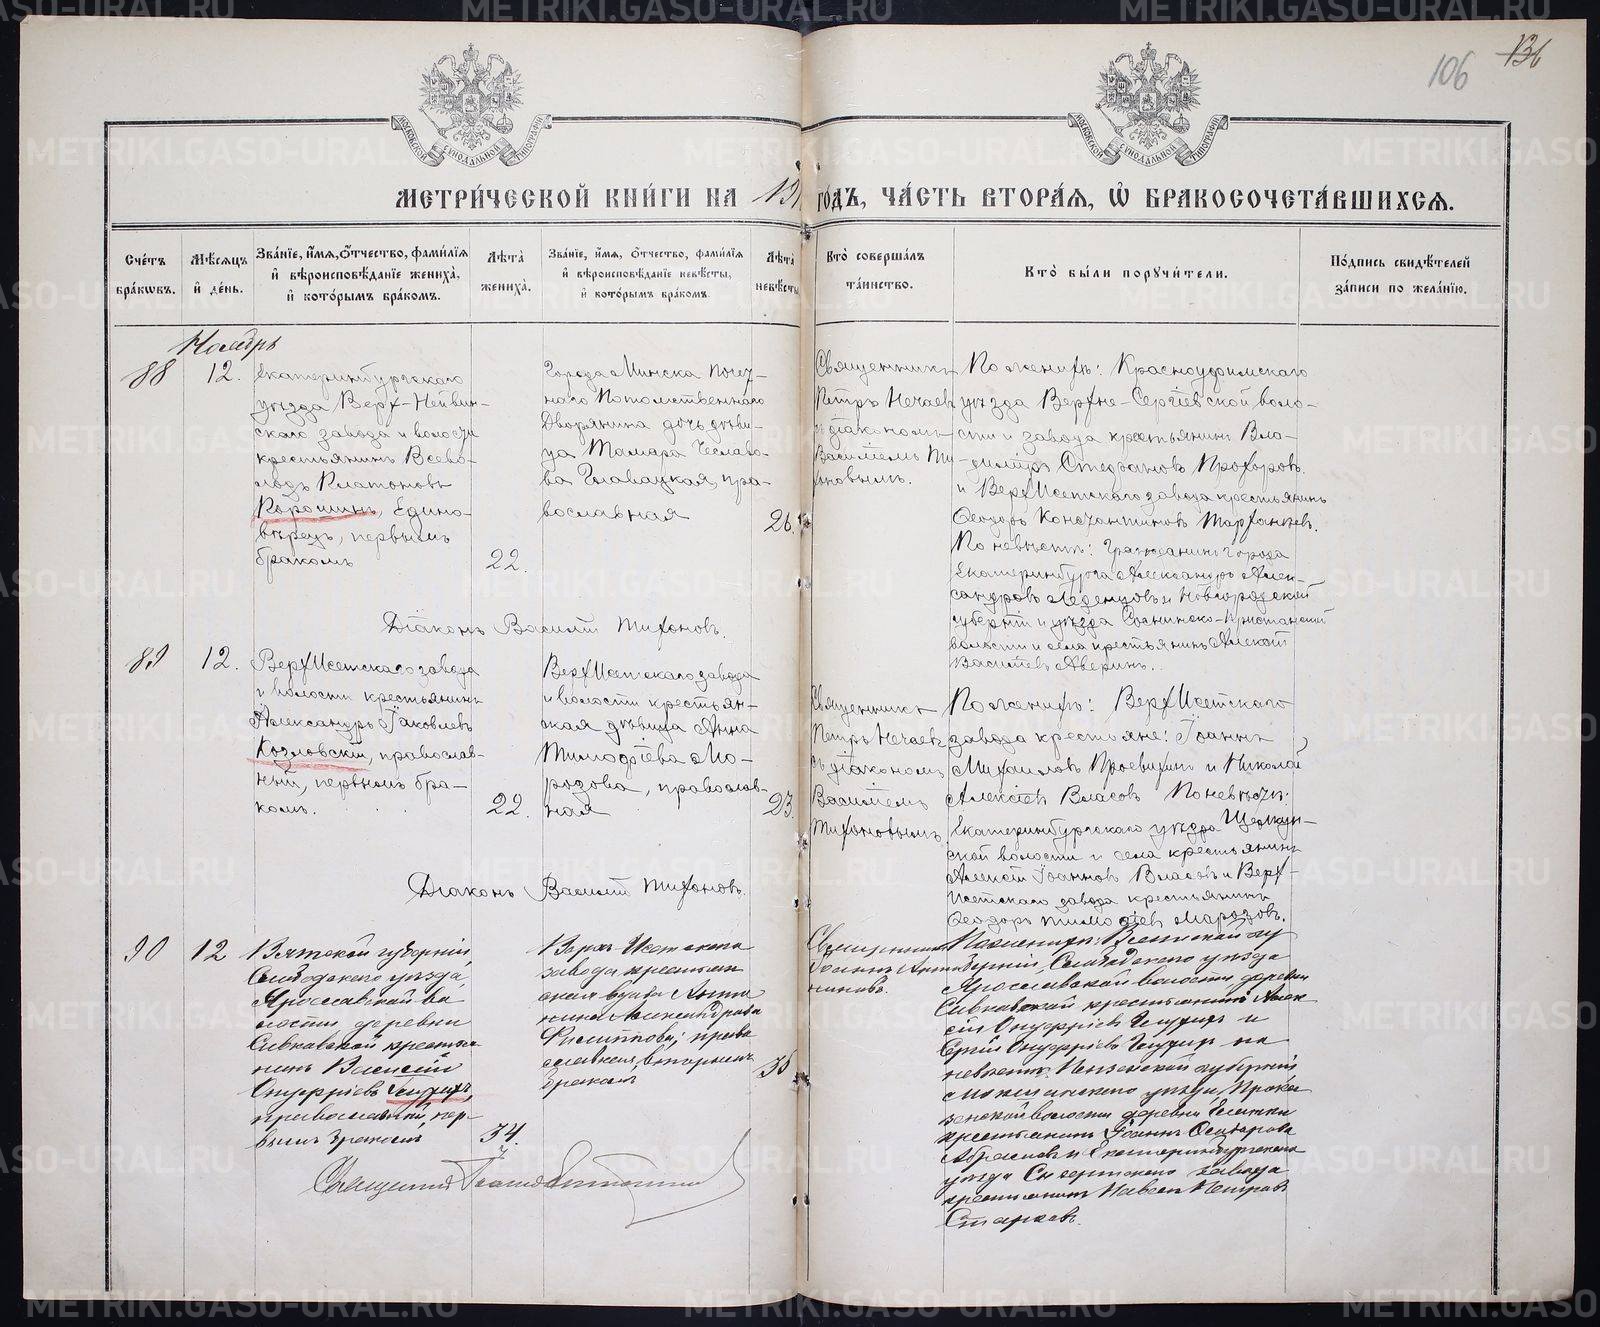 METRIKI.GASO-URAL.RU
106
136
МОСКОВСКОЙ СѴНОДАЛЬНОЙ ТИПОГРАФІИ
МОСКОВСКОЙ СѴНОДАЛЬНОЙ ТИПОГРАФІИ
МЕТРИ́ЧЕСКОЙ КНИ́ГИ НА 191 ГО́ДЪ, ЧА́СТЬ ВТОРА́Я, Ѡ БРАКОСОЧЕТА́ВШИХСЯ.
Сче́тъ бра́кѡвъ.
Мѣ́сяцъ и́ де́нь.
Зва́нїе, и́мя, ѻ́тчество, фами́лїя и́ вѣроисповѣ́данїе жениха̀, и́ кото́рымъ бра́комъ.
Лѣ́та̀ жениха̀.
Зва́нїе, и́мя, ѻ́тчество, фами́лїя и́ вѣроисповѣ́данїе невѣ́сты, и́ кото́рымъ бра́комъ.
Лѣ́та̀ невѣ́сты
Кто̀ соверша́лъ та́инство.
Кто̀ бы́ли поручи́тели.
По́дпись свидѣ́телей за́писи по жела́нїю.
Ноябрь
88
12.
Екатеринбургскаго
уѣзда Верх-Нейвин-
скаго завода и волости
крестьянинъ Всево-
лодъ Платоновъ
Порошинъ, Едино-
вѣрецъ, первымъ
бракомъ
22.
Города Минска почет-
наго Потомственнаго
Дворянина дочь дѣви-
ца Тамара Чеславо-
ва Главацкая, пра-
вославная
26.
Священникъ
Петръ Нечаевъ
съ діакономъ
Василіемъ Ти-
хоновымъ.
По женихѣ: Красноуфимскаго
уѣзда Верхне-Сергіевской воло-
сти и завода крестьянинъ Вла-
диміръ Стефановъ Прохоровъ.
и ВерхИсетскаго завода крестьянинъ
Ѳеодоръ Константиновъ
По невѣстѣ: гражданинъ города
Екатеринбурга Александръ Алек-
сандровъ Леденцовъ и Новгородской
губерніи и уѣзда Соснинско-Пристанской
волости и села крестьянинъ Алексѣй
Васильевъ Аверинъ.
Діаконъ Василій Тихоновъ.
89
12.
ВерхИсетскаго завода
и волости крестьянинъ
Александръ Іаковлевъ
Козловскій, православ-
ный, первымъ бра-
комъ.
22.
ВерхИсетскаго завода
и волости крестьян-
ская дѣвица Анна
Тимофѣева Мо-
розова, православ-
ная
23.
Священникъ
Петръ Нечаевъ
съ діакономъ
Василіемъ
Тихоновымъ
По женихѣ: ВерхИсетскаго
завода крестьяне: Іоаннъ
Михаиловъ и Николай
Алексѣевъ Власовъ По невѣстѣ:
Екатеринбургскаго уѣзда Щелкун-
ской волости и села крестьянинъ
Алексѣй Іоанновъ Власовъ и Верх-
Исетскаго завода крестьянинъ
Ѳеодоръ Тимофѣевъ Морозовъ.
Діаконъ Василій Тихоновъ.
90
12
Вятской губерніи,
Слободскаго уѣзда,
Ярославской во
лости, деревни
Сивковской крестья
нинъ Василій
Онуфріевъ
православный, пер-
вымъ бракомъ
34.
Верхъ-Исетскаго
завода крестьян
ская вдова Анто
нина Александрова
Филиппова; право
славная, вторымъ
бракомъ
Священникъ
Іоаннъ
По женихѣ: Вятской гу
берніи, Слободскаго уѣзда
Ярославской волости, деревни
Сивковской крестьянинъ Алек
сѣй Онуфріевъ и
Сергій Онуфріевъ по
невѣстѣ: Пензенской губерніи
Мокшанскаго уѣзда,
волости деревни
крестьянинъ Іоаннъ
и Екатеринбургскаго
уѣзда Сысертскаго завода
крестьянинъ Павелъ Петровъ
Старковъ.
Священникъ Іоаннъ